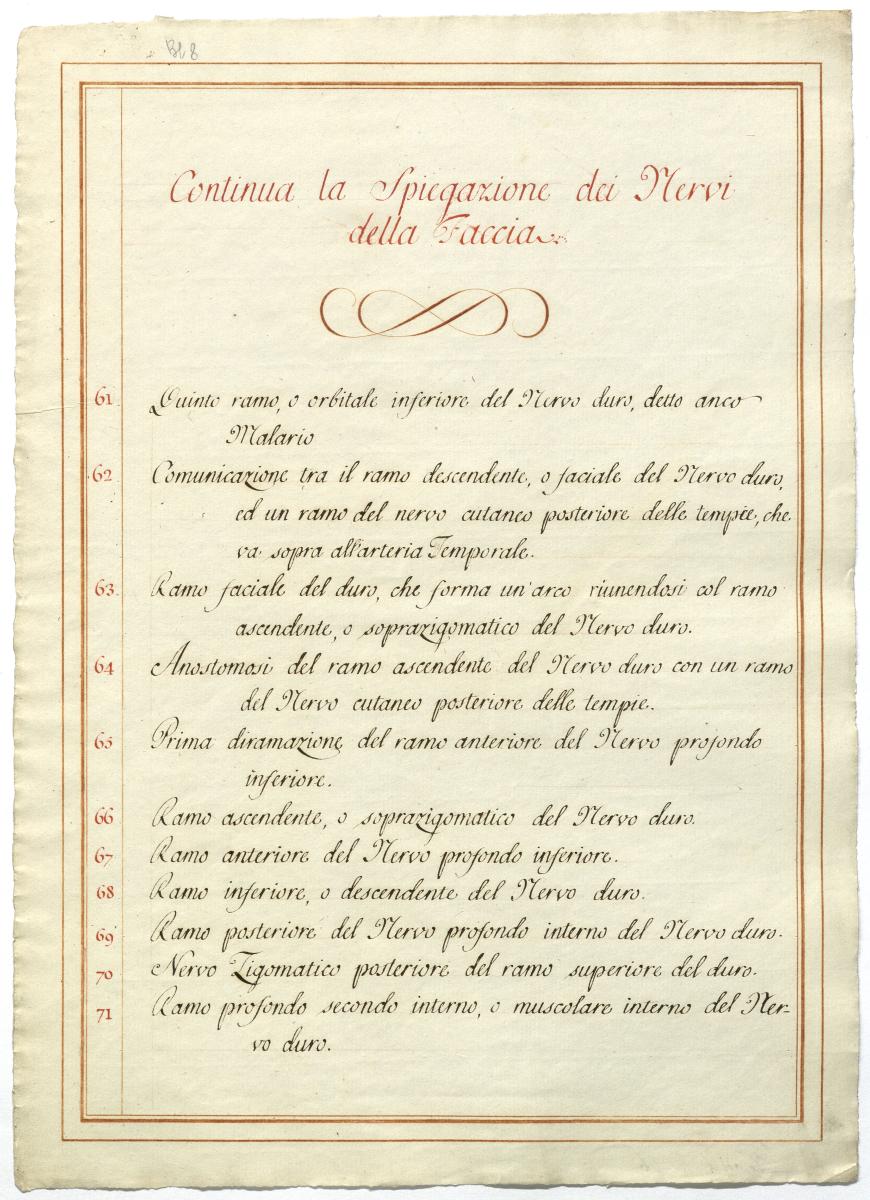 Bl 8
Continua la Spiegazione dei Nervi
della Faccia
61 Quinto ramo, o orbitale inferiore del Nervo duro, detto anco
Malario
62 Comunicazione tra il ramo descendente, o faciale del Nervo duro,
ed un ramo del nervo cutaneo posteriore delle tempie, che
va sopra all'arteria Temporale.
63. Ramo faciale del duro, che forma un'arco riunendosi col ramo
ascendente, o soprazigomatico del Nervo duro.
64 Anostomosi del ramo ascendente del Nervo duro con un ramo
del Nervo cutaneo posteriore delle tempie.
65 Prima diramazione del ramo anteriore del Nervo profondo
inferiore.
66 Ramo ascendente, o soprazigomatico del Nervo duro.
67 Ramo anteriore del Nervo profondo inferiore.
68 Ramo inferiore, o descendente del Nervo duro.
69 Ramo posteriore del Nervo profondo interno del Nervo duro.
70 Nervo Zigomatico posteriore del ramo superiore del duro.
71 Ramo profondo secondo interno, o muscolare interno del Ner-
vo duro.